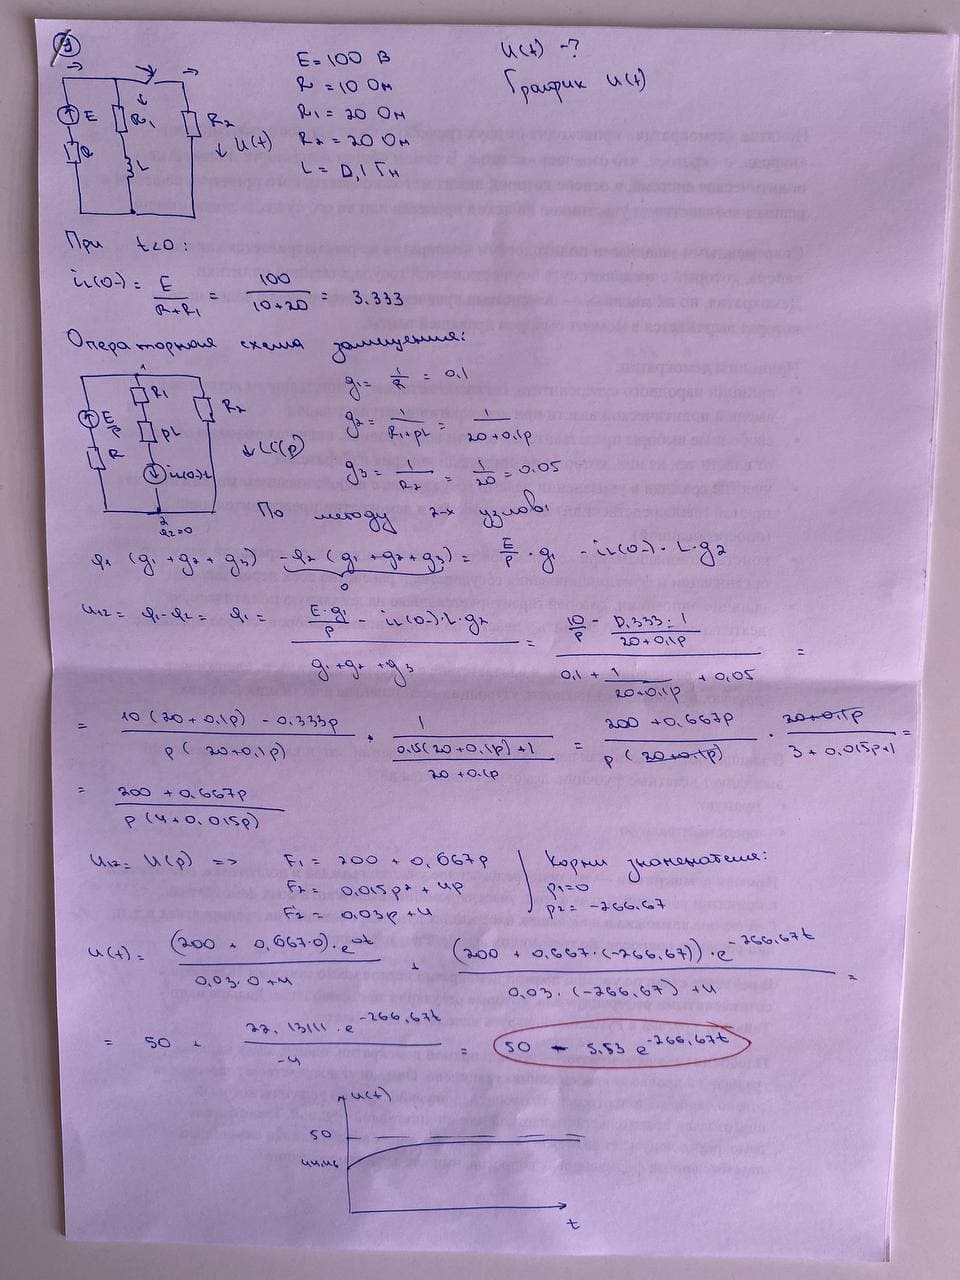 9
E = 100 В
R = 10 Ом
R1 = 20 Ом
R2 = 20 Ом
L = 0,1 Гн
U(t) -?
График U(t)
E R1 R2 U(t)
R L
При t<0:
iL(0-) = E/(R+R1) = 100/(10+20) = 3.333
Операторная схема замещения:
1
E/p R1 R2
R pL U(p)
iL(0-)L
2
φ2=0
g1 = 1/R = 0.1
g2 = 1/(R1+pL) = 1/(20+0.1p)
g3 = 1/R2 = 1/20 = 0.05
По методу 2-х узлов:
φ1 (g1 + g2 + g3) - φ2 (g1 + g2 + g3) = E/p · g1 - iL(0-) · L · g2
0
U12 = φ1 - φ2 = φ1 = (E·g1/p - iL(0-)·L·g2)/(g1 + g2 + g3) = (10/p - 0.333·1/(20+0.1p))/(0.1 + 1/(20+0.1p) + 0.05) =
= (10(20+0.1p) - 0.333p)/(p(20+0.1p)) · 1/((0.15(20+0.1p)+1)/(20+0.1p)) = (200+0.667p)/(p(20+0.1p)) · (20+0.1p)/(3+0.015p+1) =
= (200+0.667p)/(p(4+0.015p))
U12 = U(p) => F1 = 200 + 0.667p
F2 = 0.015p² + 4p
F2' = 0.03p + 4
Корни знаменателя:
p1 = 0
p2 = -266.67
U(t) = (200 + 0.667·0)·e^0t/(0.03·0+4) + (200 + 0.667·(-266.67))·e^-266.67t/(0.03·(-266.67)+4) =
= 50 + 22.13111·e^-266.67t/-4 = 50 - 5.53 e^-266.67t
U(t)
50
44.46
t